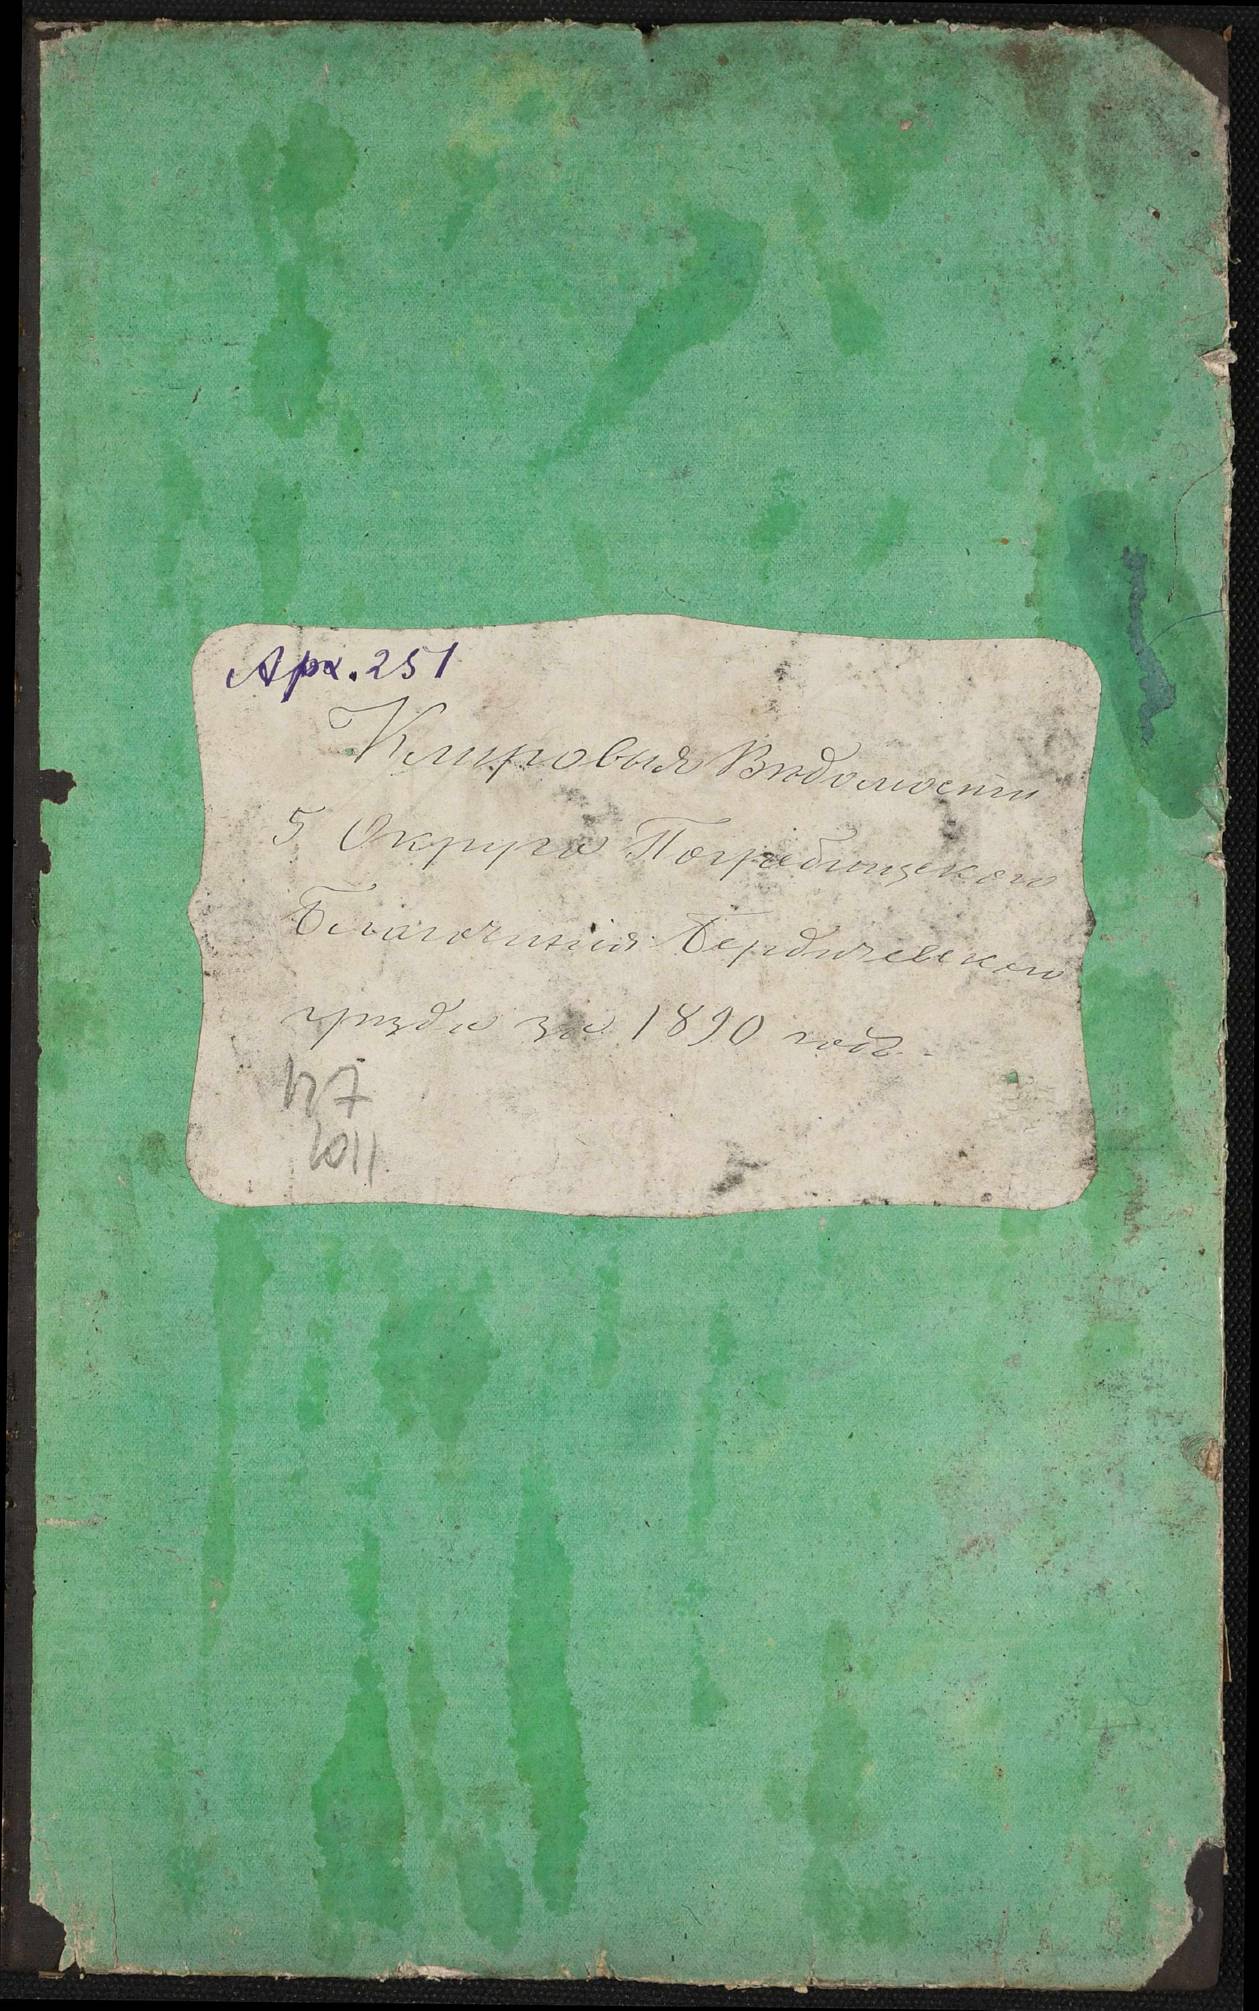 Арх. 251
Клировыя Вѣдомости
5 Округа Погребищскаго
Благочинія Бердичевскаго
уѣзда за 1890 годъ.
1011